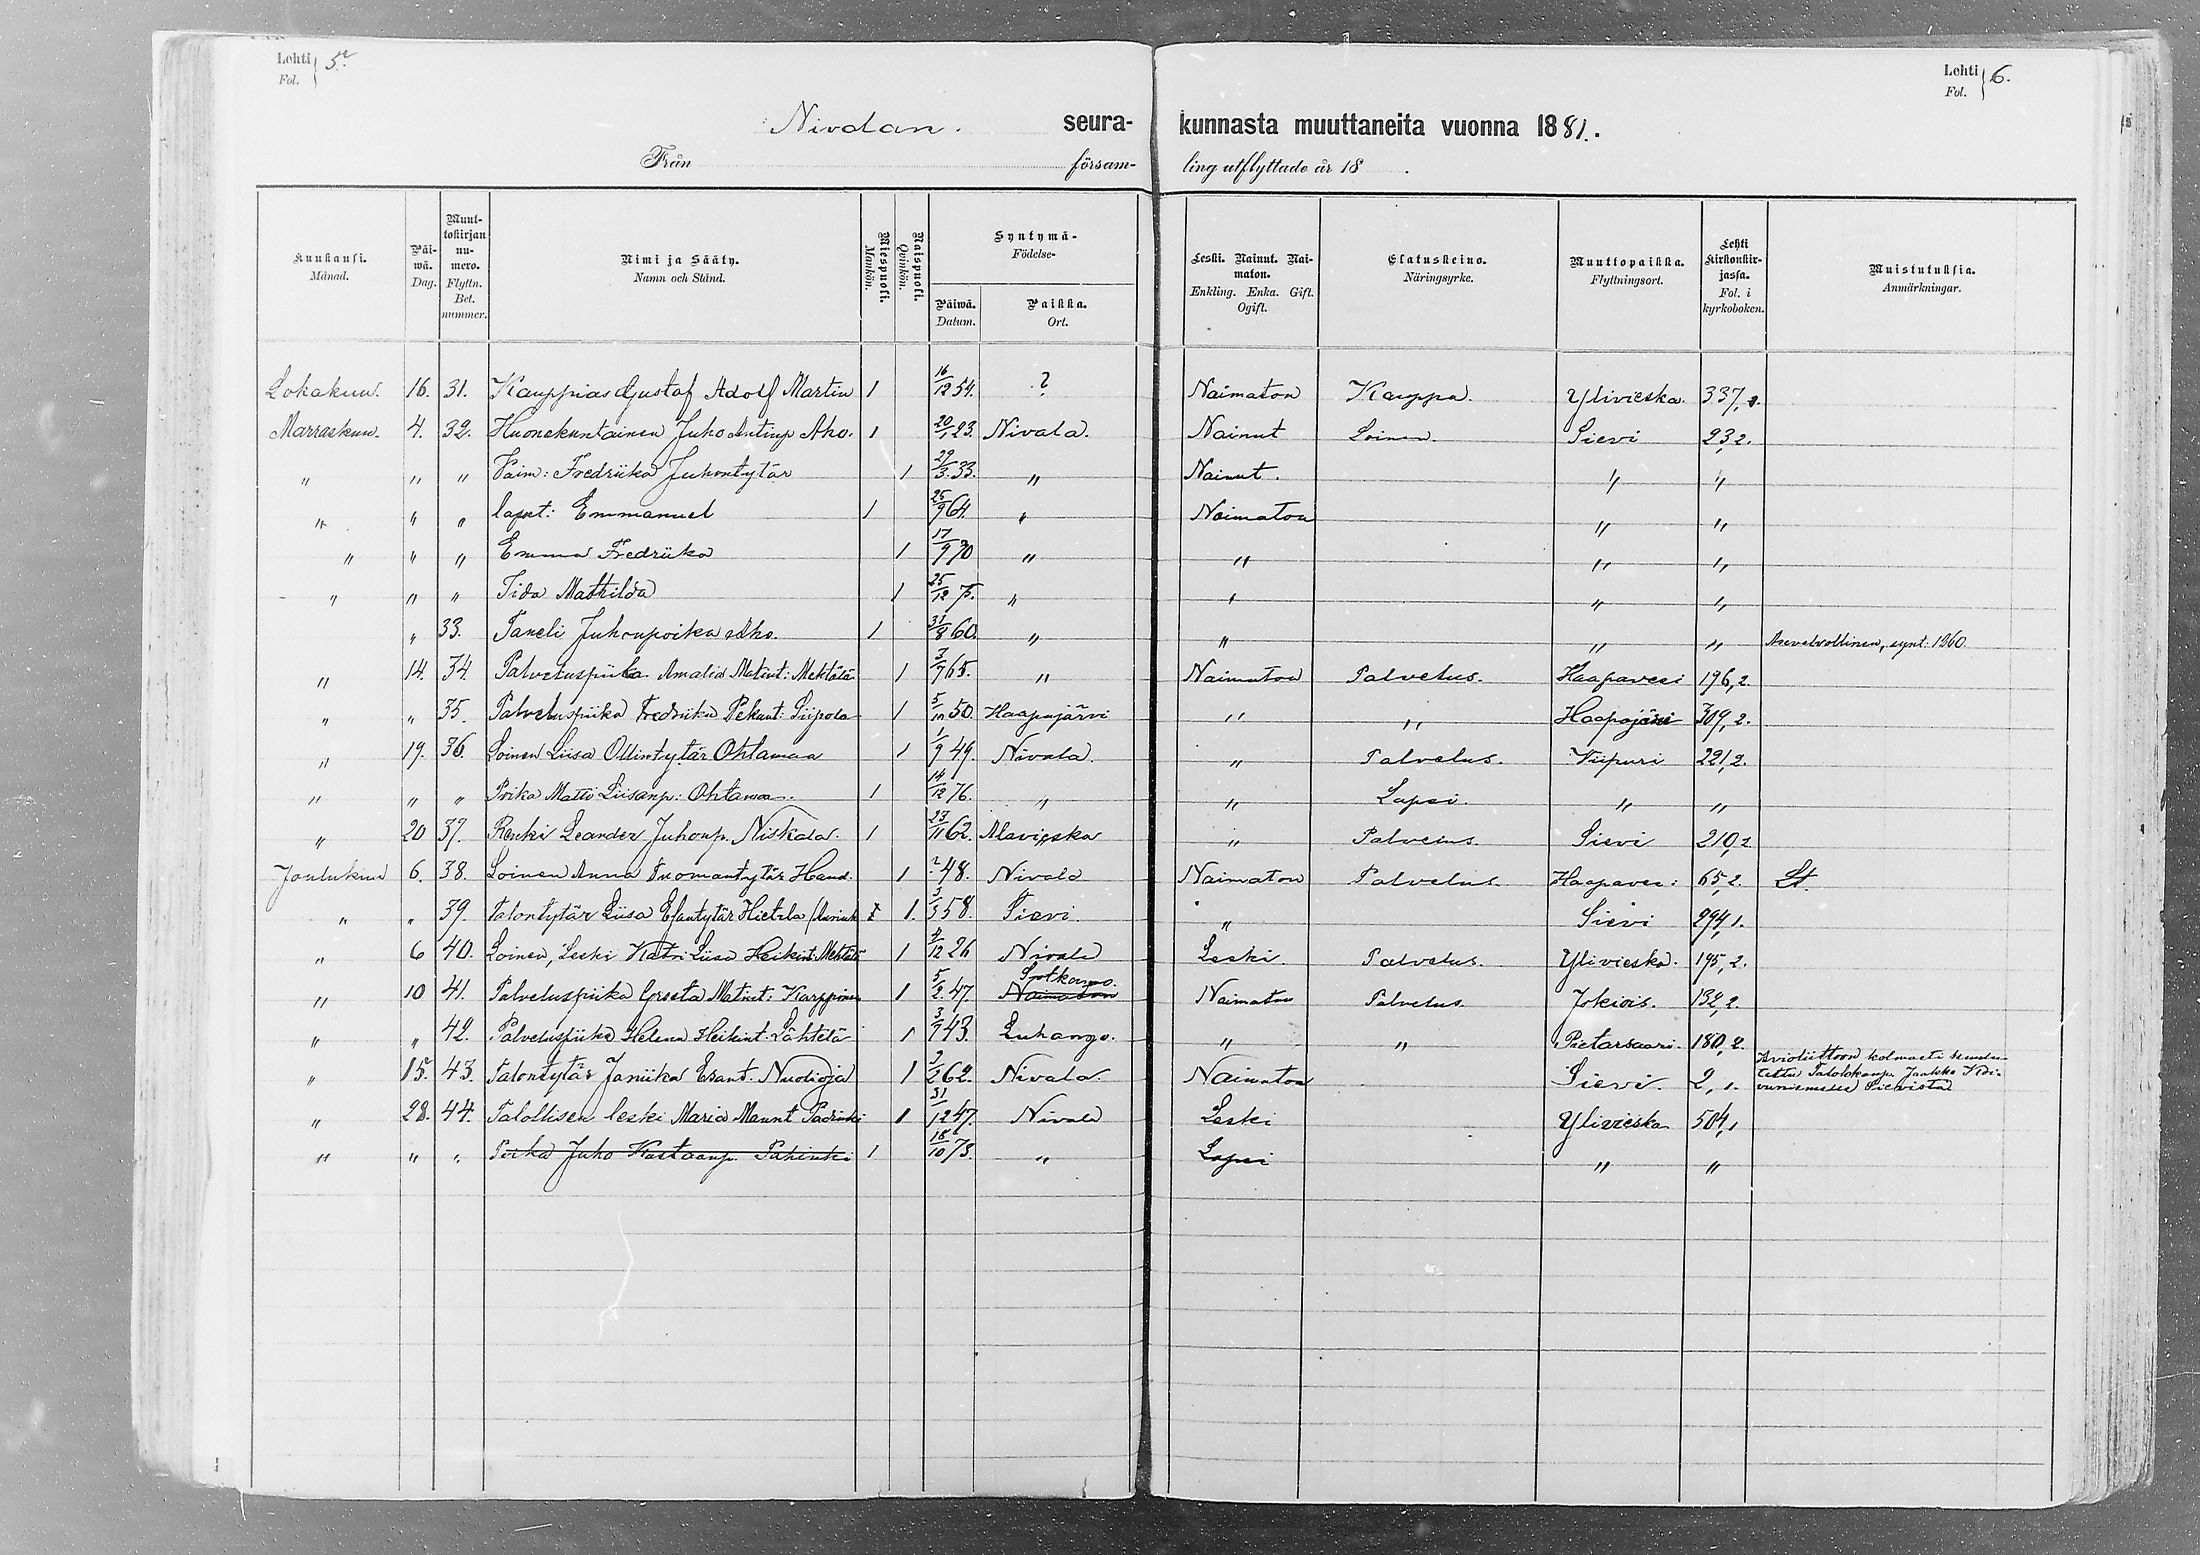 Lehti Fol. 5.
Lehti Fol. 6.
Nivalan. seura- kunnasta muuttaneita vuonna 1881.
Från försam- ling utflyttade år 18 .
Kuukausi. Månad. Päiwä. Dag. Muuttokirjan numero. Flyttn. Bet. nummer. Nimi ja Sääty. Namn och Stånd. Miespuoli. Mankön. Naispuoli. Qvinkön. Syntymä- Födelse- Päiwä. Datum. Paikka. Ort. Leski. Nainut. Naimaton. Enkling. Enka. Gift. Ogift. Elatuskeino. Näringsyrke. Muuttopaikka. Flyttningsort. Lehti kirkonkirjassa. Fol. i kyrkoboken. Muistutuksia. Anmärkningar.
Lokakuu. 16. 31. Kauppias Gustaf Adolf Martin 1 16/12 54. ? Naimaton Kauppa. Ylivieska. 337,
Marraskuu. 4. 32. Huonekuntainen Juho Antinp Aho. 1 20/1 23. Nivala. Nainut Loinen. Sievi 23,2.
" " " Vaim: Fredriika Juhontytär 1 29/3 33. " Nainut. " "
" " " lapset: Emmanuel 1 25/9 64. " Naimaton " "
" " " Emma Fredriika 1 17/9 70 " " " "
" " " Iida Mathilda 1 25/12 75. " " " "
" 33. Taneli Juhonpoika Aho. 1 31/8 60. " " " " Asevelvollinen, synt: 1860.
" 14. 34. Palveluspiika Amalia Matint: Mehtälä 1 3/9 65. " Naimaton Palvelus. Haapavesi 196,2.
" " 35. Palveluspiika Fredriika Pekant: Siipola 1 5/10 50. Haapajärvi " " Haapajärvi 309,2.
" 19. 36. Loinen Liisa Ollintytär Ohtamaa 1 1/9 49. Nivala. " Palvelus. Viipuri 221,2.
" " " Poika Matti Liisanp: Ohtamaa. 1 14/12 76. " " Lapsi. " "
" 20 37. Renki Leander Juhonp. Niskala. 1 23/11 62. Alavieska " Palvelus. Sievi 210,2
Joulukuu 6. 38. Loinen Anna Tuomantytär Haud. 1 ? 48. Nivala Naimaton Palvelus. Haapaves: 65,2. St.
" " 39. Talontytär Liisa Esantytär Hietala 1. 3/3 58. Sievi. " Sievi 294,1.
" 6 40. Loinen, Leski Katri Liisa Heikint: Mehtälä 1 4/12 26 Nivala Leski. Palvelus. Ylivieska. 195,2.
" 10 41. Palveluspiika Greeta Matint: Karppinen 1 5/2 47. Sotkamo. Naimaton Naimaton Palvelus. Jokiois. 132,2.
" " 42. Palveluspiika Helena Heikint. Lähtelä 1 3/9 43. Luhango. " " Pietarsaari. 180,2.
" 15. 43. Talontytär Janiika Esant. Nuolioja 1 2/2 62. Nivala. Naimaton Sievi. 2,1. Avioliittoon kolmasti kuulutettu Talolisenp. Jaakko Sievistä
" 28. 44. Talollisen leski Maria Maunt 1 31/12 47. Nivala Leski Ylivieska 504,1
" " " Poika Juho Kustaanp. Pahinki 1 15/10 73. " Lapsi " "